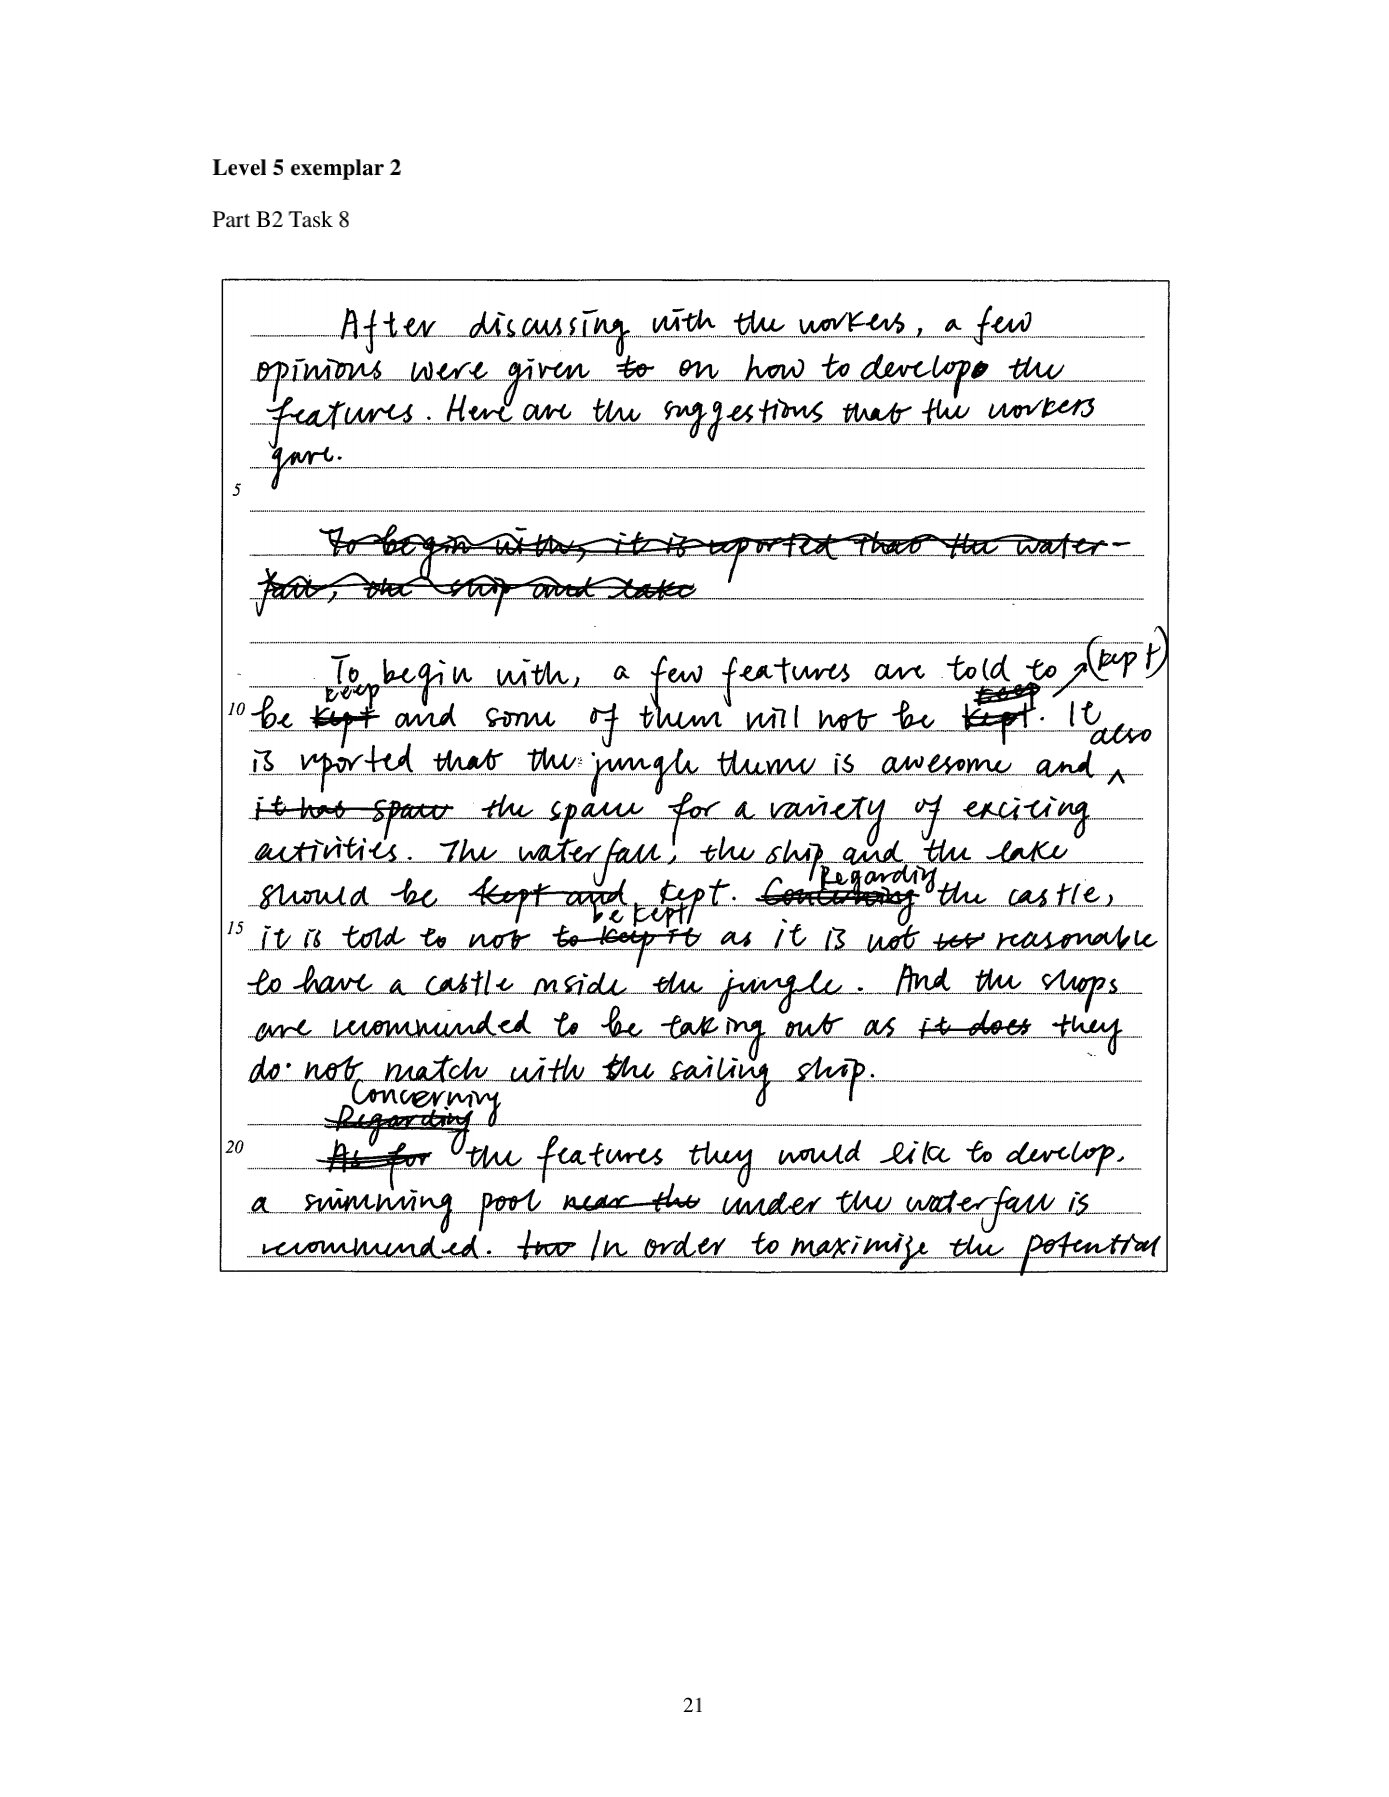 Level 5 exemplar 2
Part B2 Task 8
After discussing with the workers, a few
opinions were given to on how to develop the
features. Here are the suggestions that the workers
gave.
5
To begin with, it is reported that the water-
fall, the ship and lake
To begin with, a few features are told to (kept)
keep keep
10 be kept and some of them will not be kept. It
also
is reported that the jungle theme is awesome and ^
it has space the space for a variety of exciting
activities. The waterfall, the ship and the lake
Regarding
should be kept and kept. Concerning the castle,
be kept
15 it is told to not to keep it as it is not reasonable
to have a castle inside the jungle. And the shops
are recommended to be taking out as it does they
do not match with the sailing ship.
Concerning
Regarding
20 As for the features they would like to develop,
a swimming pool near the under the waterfall is
recommended. two In order to maximize the potential
21